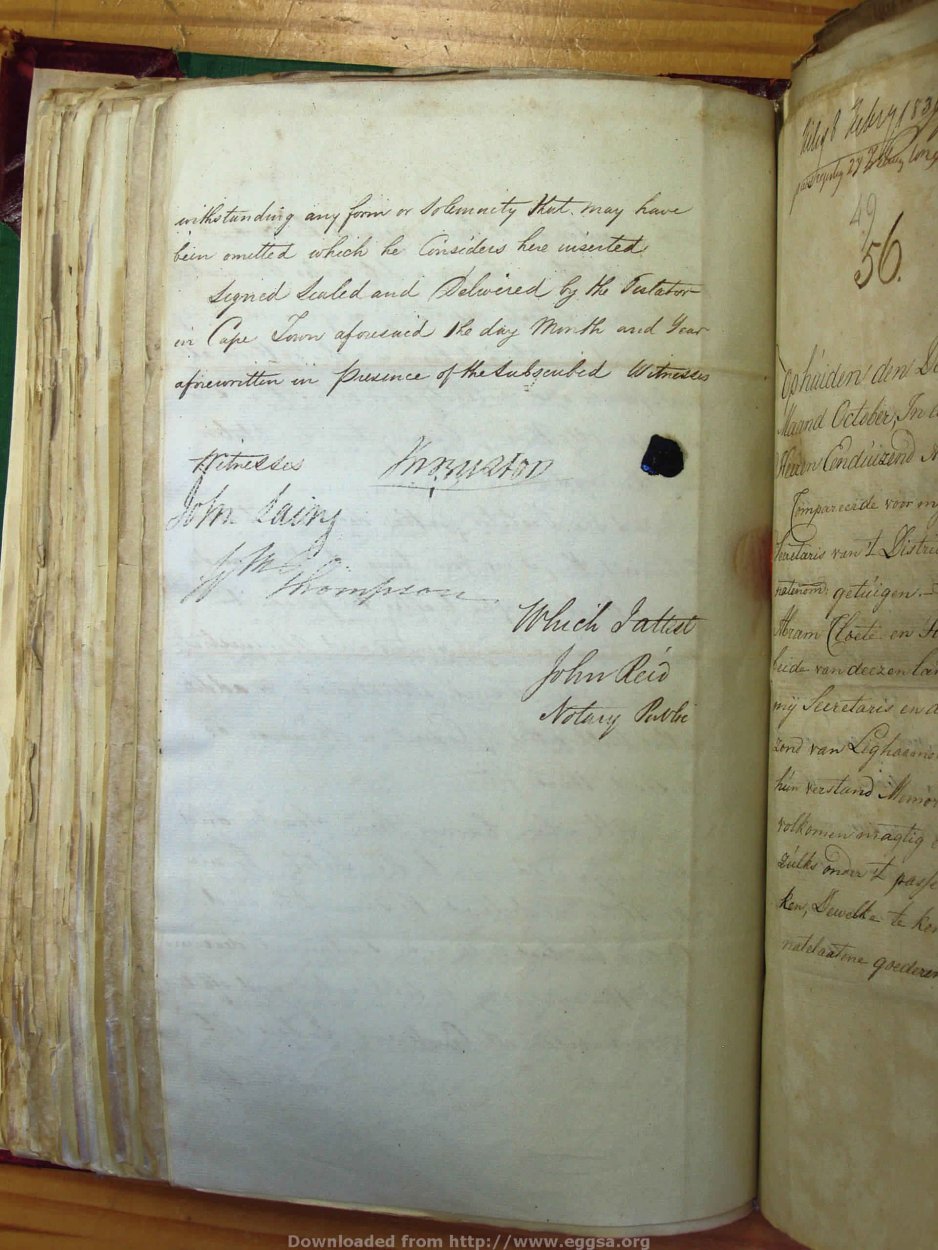 withstanding any form or Solemnity that may have
been omitted which he Considers here inserted
Signed Sealed and Delivered by the Testator
in Cape Town aforesaid the day Month and Year
aforewritten in Presence of the Subscribed Witnesses
Witnesses
John Laing
Wm Thompson
Which I attest
John Reid
Notary Public
49
56.
Op huiden den
Maand October, In
Heeren Eenduizend
Compareerde voor
Secretaris van 't
getuigen
Abram Cloete en
van deezen
mij Secretaris en
van
hun verstand
volkomen magtig
zulks onder 't
ken, Dewelke te
natelaatene goederen
Downloaded from http://www.eggsa.org